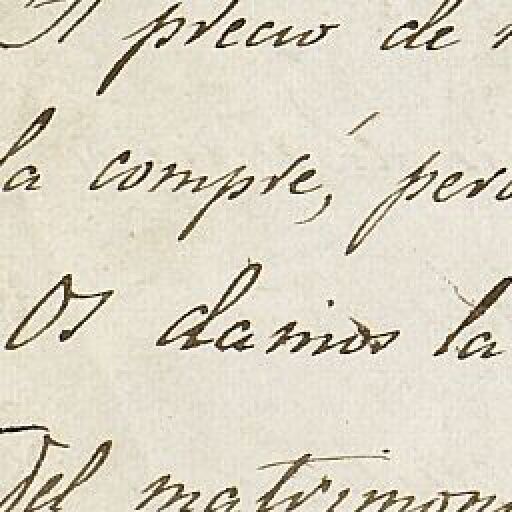 precio de
la compré, pero
Os damos la
Del matrimoni